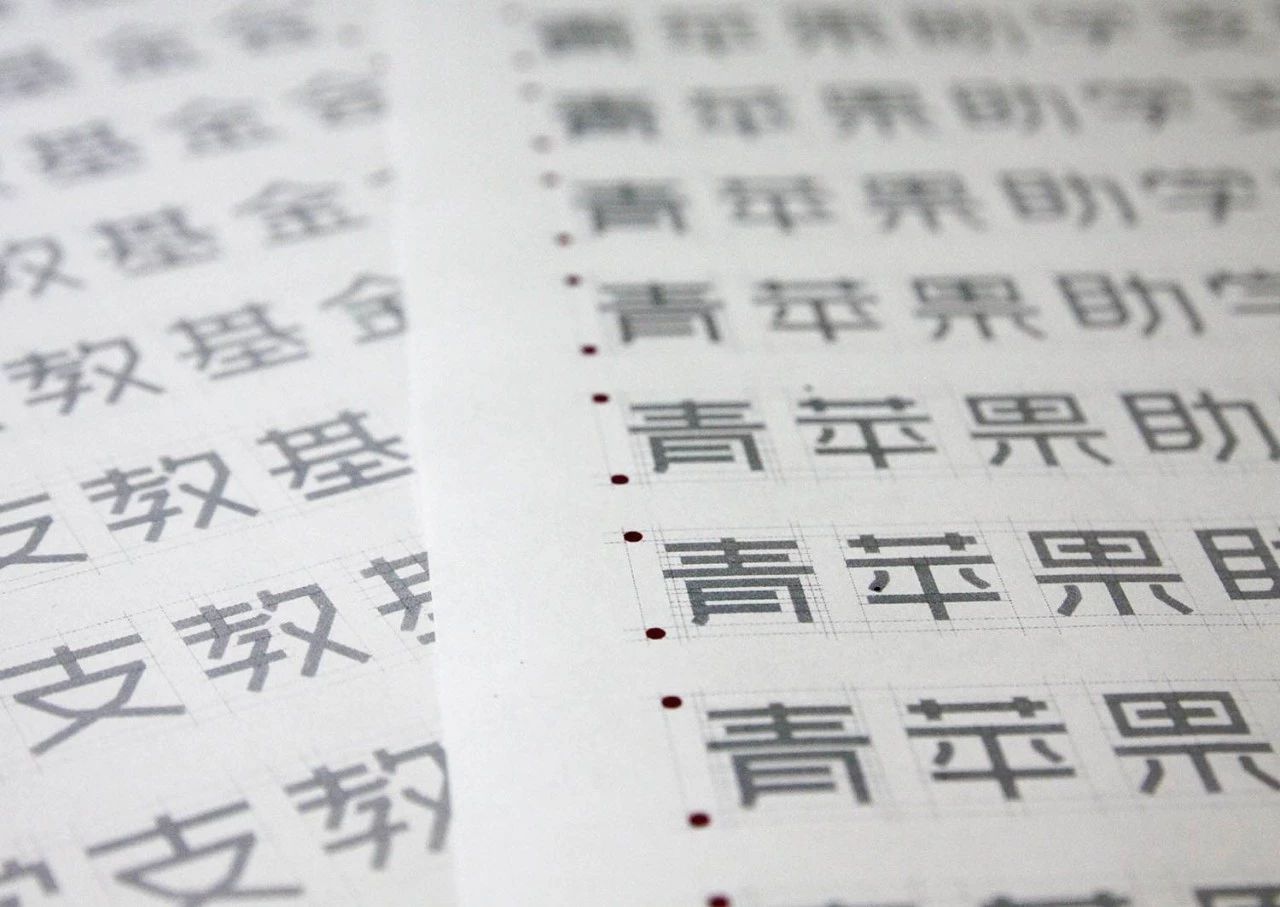 基金会
基金会
教基金
教基金
支教基
支教基
支教
青苹果助学支
青苹果助学支
青苹果助学
青苹果助学
青苹果助
青苹果助
青苹果